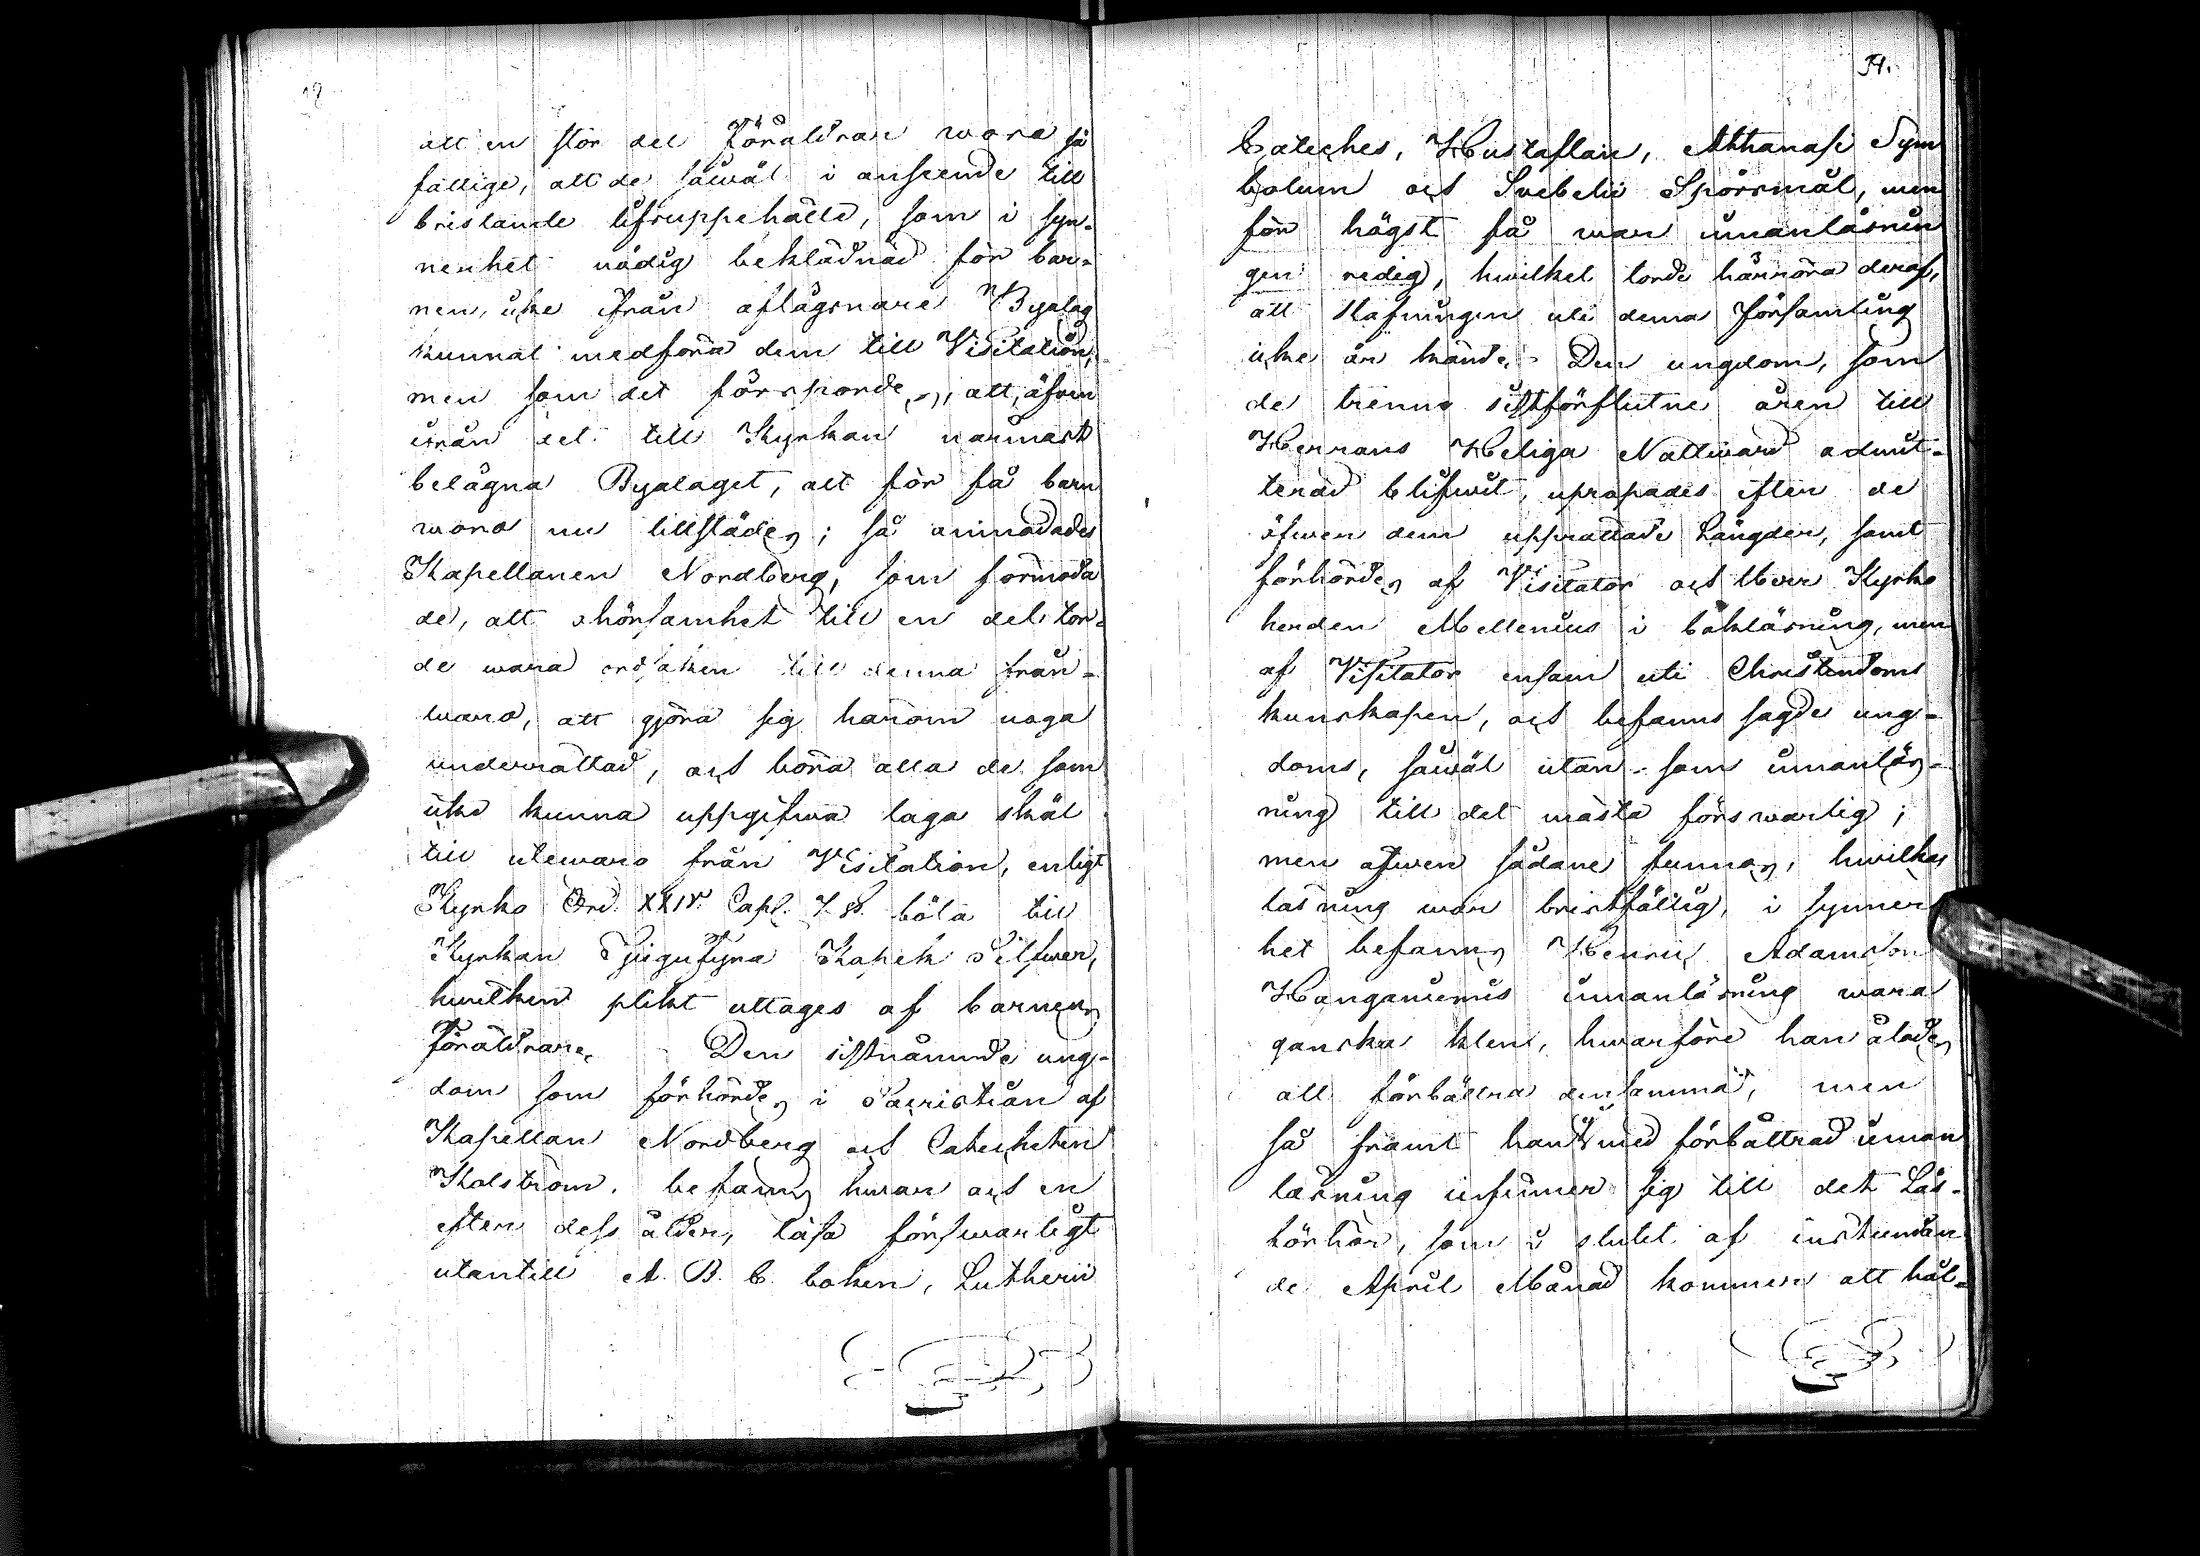 att en stor del Föräldrar wore så
fattige, att de såwäl i anseende till
bristande lifsuppehälle, som i syn-
nerhet nödig beklädnad för bar-
nen, icke ifrån aflägsnare Byalag
kunnat medföra dem till Visitation,
men som det förspordes, att, äfven
ifrån det till Kyrkan närmast
belägna Byalaget, alt för få barn
woro nu tillstädes; så anmodades
Kapellanen Nordberg, som förmoda
de, att ohörsamhet till en del tor-
de wara orsaken till denna från-
waro, att gjöra sig härom noga
underrättad, och böra alla de som
icke kunna uppgifwa laga skäl
till utewaro från Visitation, enligt
Kyrko Ord. XXIV. Capl. 7. §§. böta till
Kyrkan Tjugufyra Kapek Silfwer,
hwilken plikt uttages af barnens
Föräldrar. Den sistnämnde ung-
dom som förhördes i Sacristian af
Kapellan Nordberg och Catecheten
Kolström, befanns hwar och en
efter dess ålder, läsa förswarligt
utantill A. B. C. boken, Lutherii
34.
Cateches, Hustaflan, Athanasi Sym
bolum och Svebelii Spörsmål, men
för högst få war innanläsnin
gen redig, hwilket torde härröra deraf,
att Stafningen uti denna Församling
icke är kände. Den ungdom, som
de trenne sistförflutne åren till
Herrans Heliga Nattward admit-
terad blifwit, upropades efter de
öfwer dem upprättade Längder, samt
förhördes af Visitator och Herr Kyrko
herden Mellenius i bokläsning, men
af Visitator ensam uti Christendoms
kunskapen, och befanns sagde ung-
doms, såwäl utan- som innanläs-
ning till det mästa förswarlig;
men äfwen sådane funnos, hwilkas
läsning war bristfällig, i synner
het befanns Henric Adamsson
Hanganiemis innanläsning wara
ganska klen, hwarföre han ålades
att förbättra densamma, men
så framt han med förbättrad innan
läsning infinner sig till det Läs-
förhör, som i slutet af instunden
de April Månad kommer att hål-